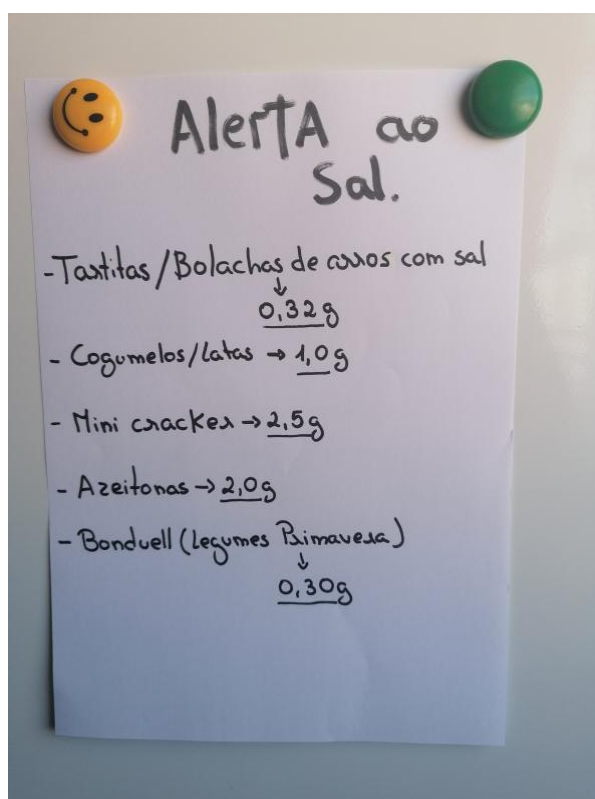 AlertA ao
Sal.
- Tastitas / Bolachas de arros com sal
↓
0,32g
- Cogumelos/latas → 1,0g
- Mini cracker → 2,5g
- Azeitonas → 2,0g
- Bonduell (legumes Primavera)
↓
0,30g